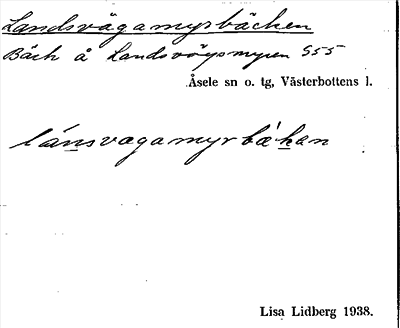 Landsvägamyrbäcken
Bäck å Landsvägsmyren 955
Åsele sn o. tg, Västerbottens l.
lánsvagamyrbǽkan
Lisa Lidberg 1938.